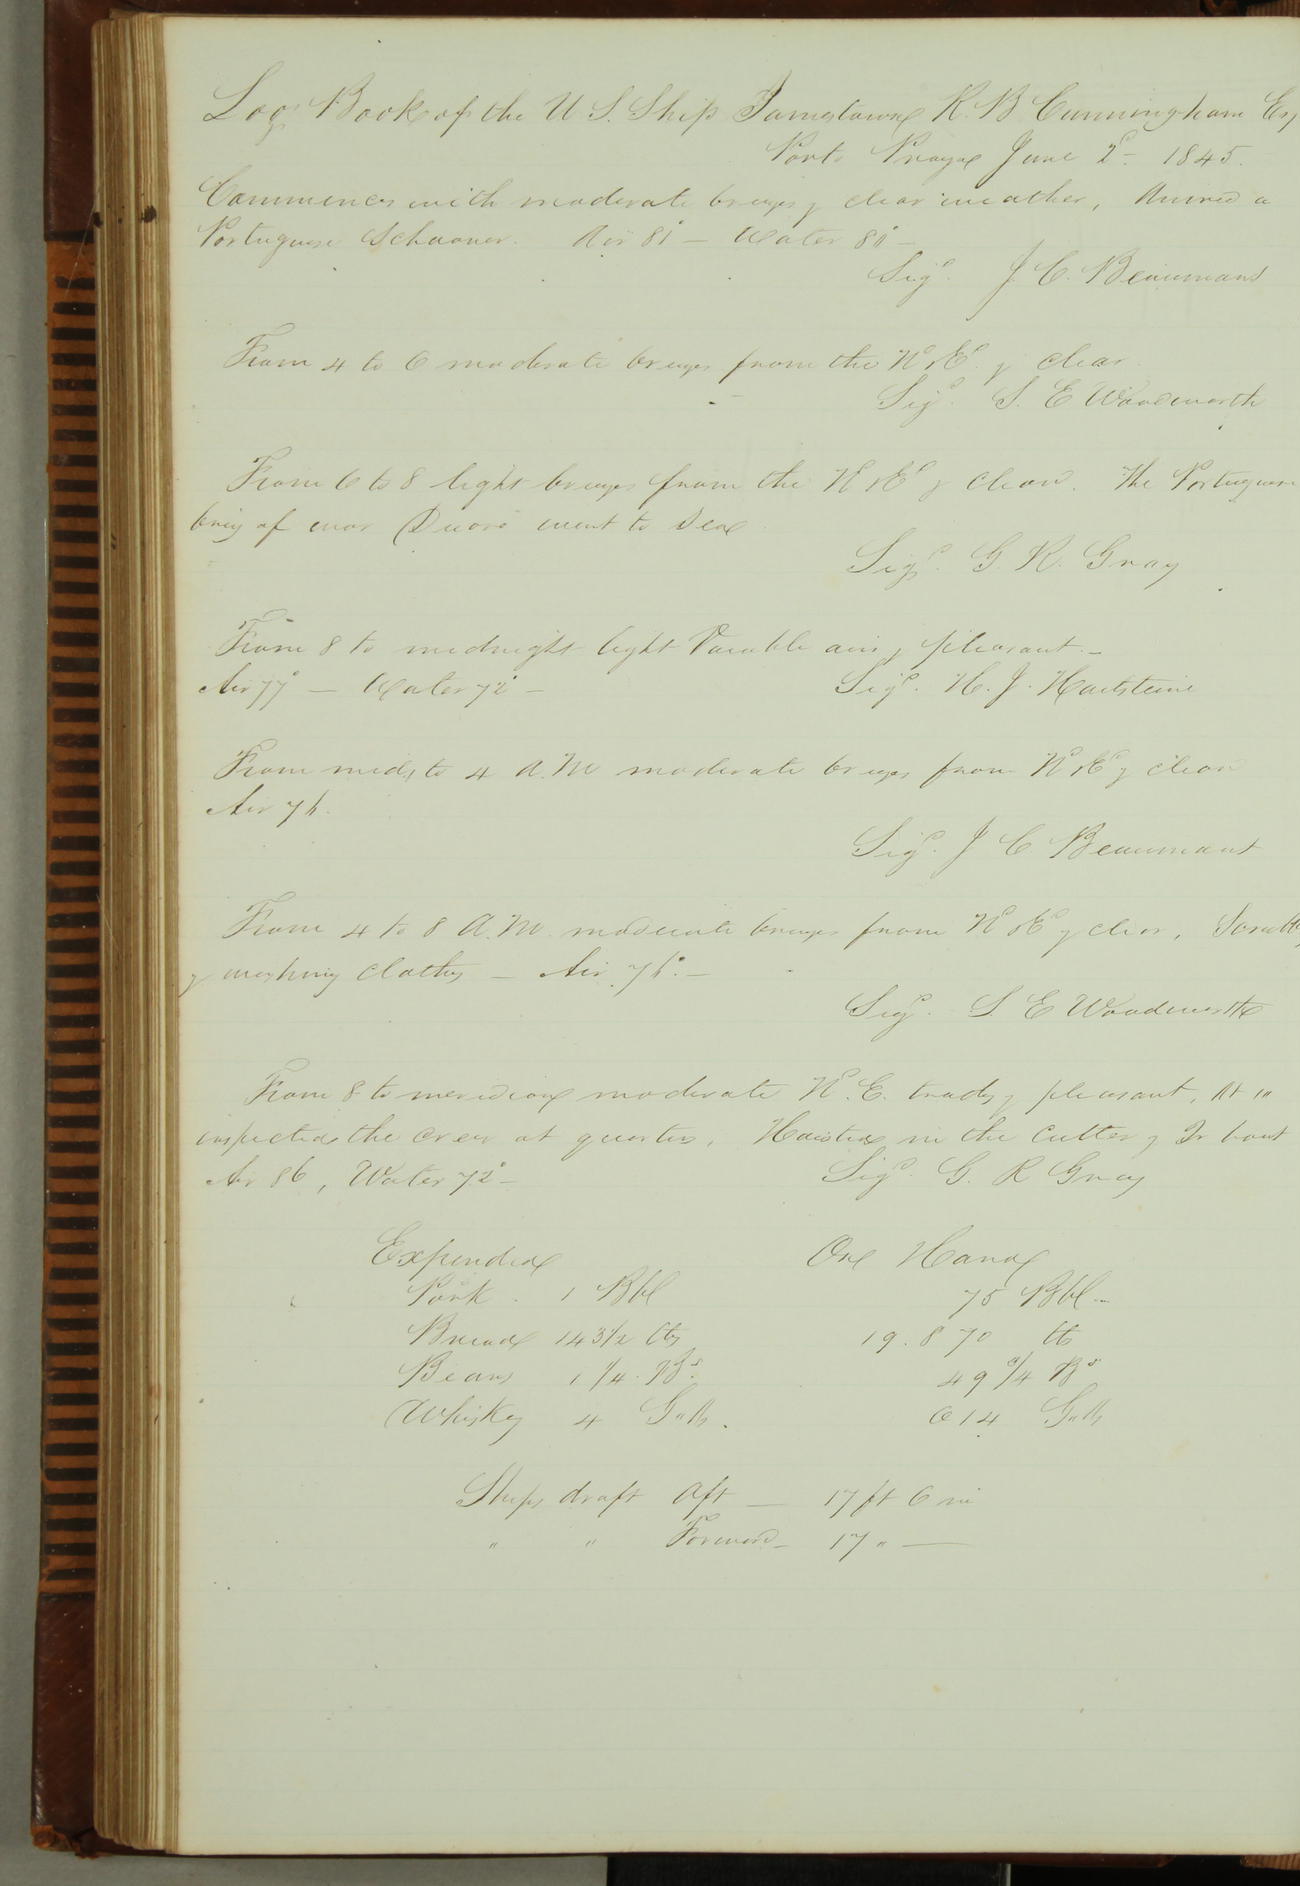 Log Book of the U S. Ship Jamestown R. B Cunningham Esq
Porto Praya June 2d 1845.
Commences with moderate breezes & clear weather, Arrived a
Portuguese Schooner. Air 81° — Water 80° —
Sigd. J. C. Beaumont
From 4 to 6 moderate breezes from the Nd & Ed. & clear
Sigd. S. E Woodworth
From 6 to 8 light breezes from the Nd & Ed & clear. The Portuguese
brig of war Duoro went to Sea
Sigd. G. R. Gray
From 8 to midnight light Variable airs & pleasant. —
Air 77° — Water 72° —
Sigd. H. J. Hartstene
From mids to 4 A.M moderate breezes from Nd & Ed & clear
Air 76.
Sigd. J C Beaumont
From 4 to 8 A.M. moderate breezes from Nd & Ed & clear,
& washing clothes — Air 76°. —
Sigd. S. E Woodworth
From 8 to meridian moderate Nd. E. trades & pleasant, At 10
inspected the crew at quarters, Hoisted in the Cutter & Jr boat
Air 86, Water 72° —
Sigd. G. R Gray
Expended On Hand
Pork. 1 Bbl 75 Bbl —
Bread 143 1/2 lbs 19.870 lbs
Beans 1 1/4. Bs. 49 3/4 Bs
Whiskey 4 Galls. 614 Galls
Ships draft Aft — 17 ft 6 in
" " Forward — 17 " —